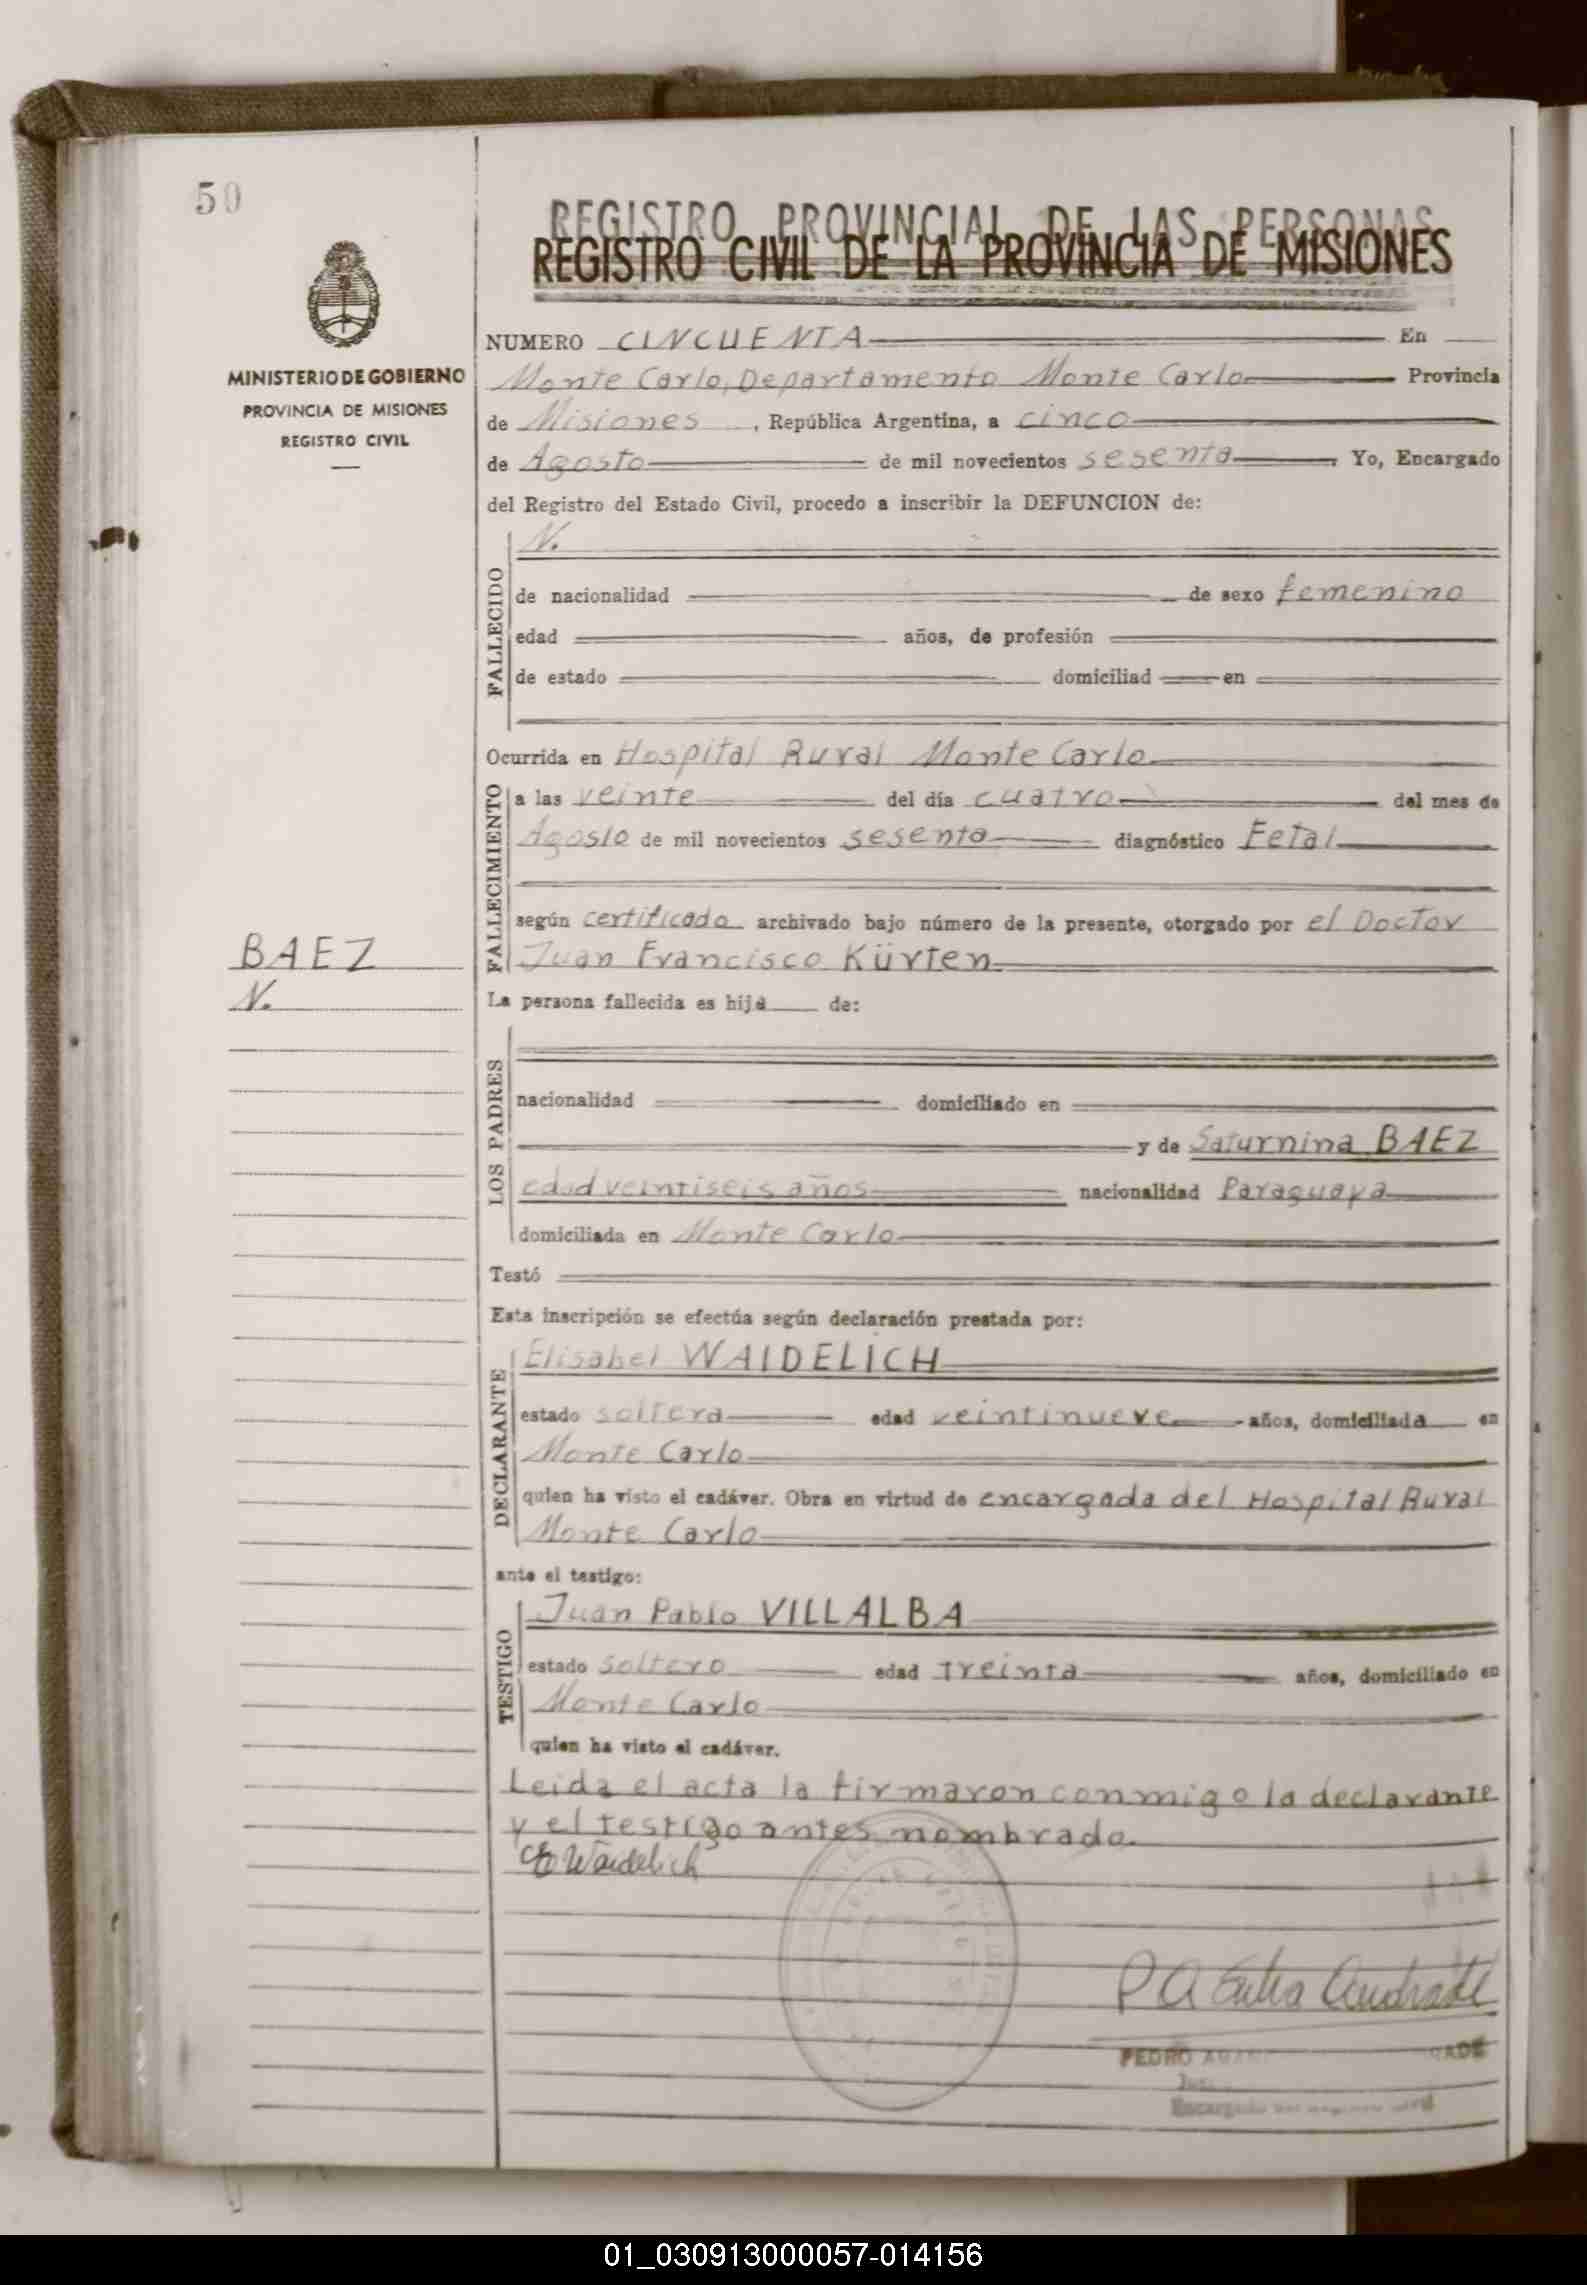 50
REGISTRO PROVINCIAL DE LAS PERSONAS
REGISTRO CIVIL DE LA PROVINCIA DE MISIONES
MINISTERIO DE GOBIERNO
PROVINCIA DE MISIONES
REGISTRO CIVIL
NUMERO CINCUENTA En
Monte Carlo, Departamento Monte Carlo Provincia
de Misiones, República Argentina, a cinco
de Agosto de mil novecientos sesenta. Yo, Encargado
del Registro del Estado Civil, procedo a inscribir la DEFUNCION de:
FALLECIDO
N.
de nacionalidad de sexo femenino
edad años, de profesión
de estado domiciliad en
Ocurrida en Hospital Rural Monte Carlo
FALLECIMIENTO
a las veinte del día cuatro del mes de
Agosto de mil novecientos sesenta diagnóstico Fetal
según certificado archivado bajo número de la presente, otorgado por el Doctor
Juan Francisco Kürten
BAEZ
N.
La persona fallecida es hija de:
LOS PADRES
nacionalidad domiciliado en
y de Saturnina BAEZ
edad veintiseis años nacionalidad Paraguaya
domiciliada en Monte Carlo
Testó
Esta inscripción se efectúa según declaración prestada por:
DECLARANTE
Elisabel WAIDELICH
estado soltera edad veintinueve años, domiciliada en
Monte Carlo
quien ha visto el cadáver. Obra en virtud de encargada del Hospital Rural
Monte Carlo
ante el testigo:
TESTIGO
Juan Pablo VILLALBA
estado soltero edad treinta años, domiciliado en
Monte Carlo
quien ha visto el cadáver.
Leida el acta la firmaron conmigo la declarante
y el testigo antes nombrado.
E Waidelich
P A Andrade
PEDRO
Encargado del
01_030913000057-014156